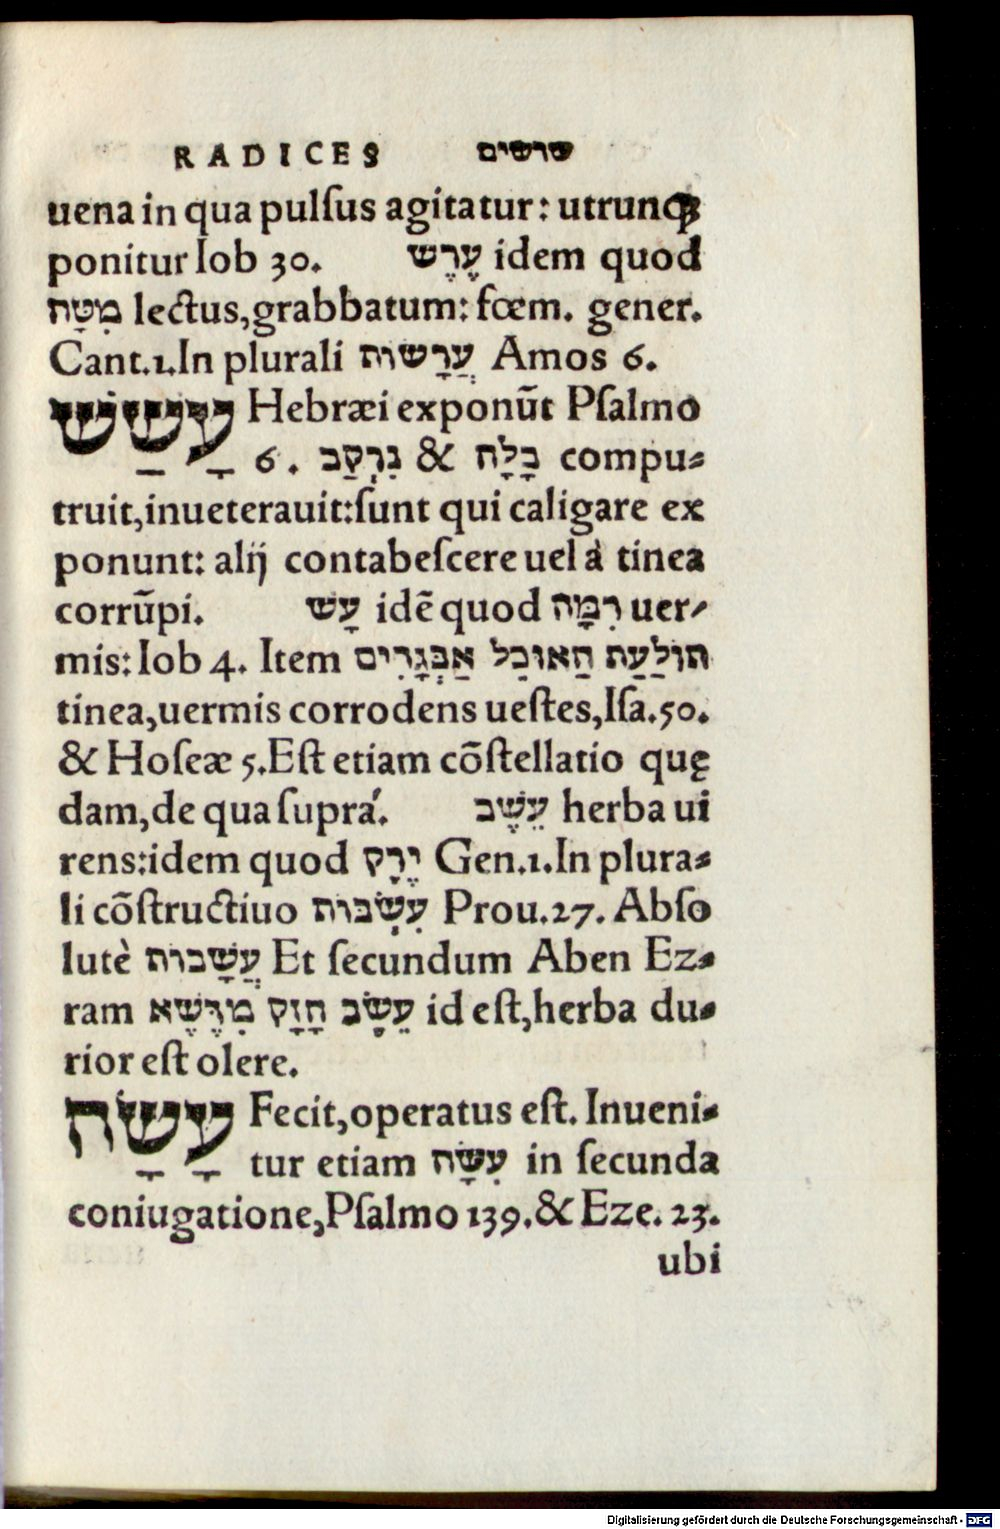 RADICES שרשים
uena in qua pulſus agitatur: utrunqꝫ
ponitur Iob 30. עֶרֶש idem quod
מִטָּה lectus,grabbatum: fœm. gener.
Cant.1.In plurali עֲרָשׂוֹת Amos 6.
עָשַׁשׁ Hebræi exponūt Pſalmo
6. נִרְקַב & בָלָה compu⸗
truit,inueterauit:ſunt qui caligare ex
ponunt: alij contabeſcere uel à tinea
corrūpi. עָשׁ idē quod רִמָּה uer⸗
mis: Iob 4. Item תוֹלַעַת הַאוֹכַל אַבְּגָרִים
tinea,uermis corrodens ueſtes,Iſa.50.
& Hoſeæ 5.Eſt etiam cōſtellatio quę
dam,de qua ſuprá. עֵשֶׂב herba ui
rens:idem quod יֶרֶק Gen.1.In plura⸗
li cōſtructiuo עִשְׂבּוֹת Prou.27. Abſo
lutè עֲשָׂבוֹת Et ſecundum Aben Ez⸗
ram עֵשֶׂב חָזָק מִדֶּשֶׁא id eſt,herba du⸗
rior eſt olere.
עָשָׂה Fecit,operatus eſt. Inueni⸗
tur etiam עִשָּׂה in ſecunda
coniugatione,Pſalmo 139.& Eze. 23.
ubi
Digitalisierung gefördert durch die Deutsche Forschungsgemeinschaft - DFG